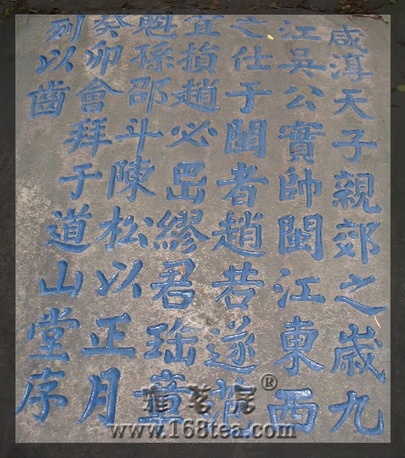 咸淳天子親郊之歲九
江吳公實帥閩江東西
之仕于閩者趙若遂
宜趙必岊繆君
魁孫邵斗陳松以正月
癸卯會拜于道山堂序
列以齒
www.168tea.com